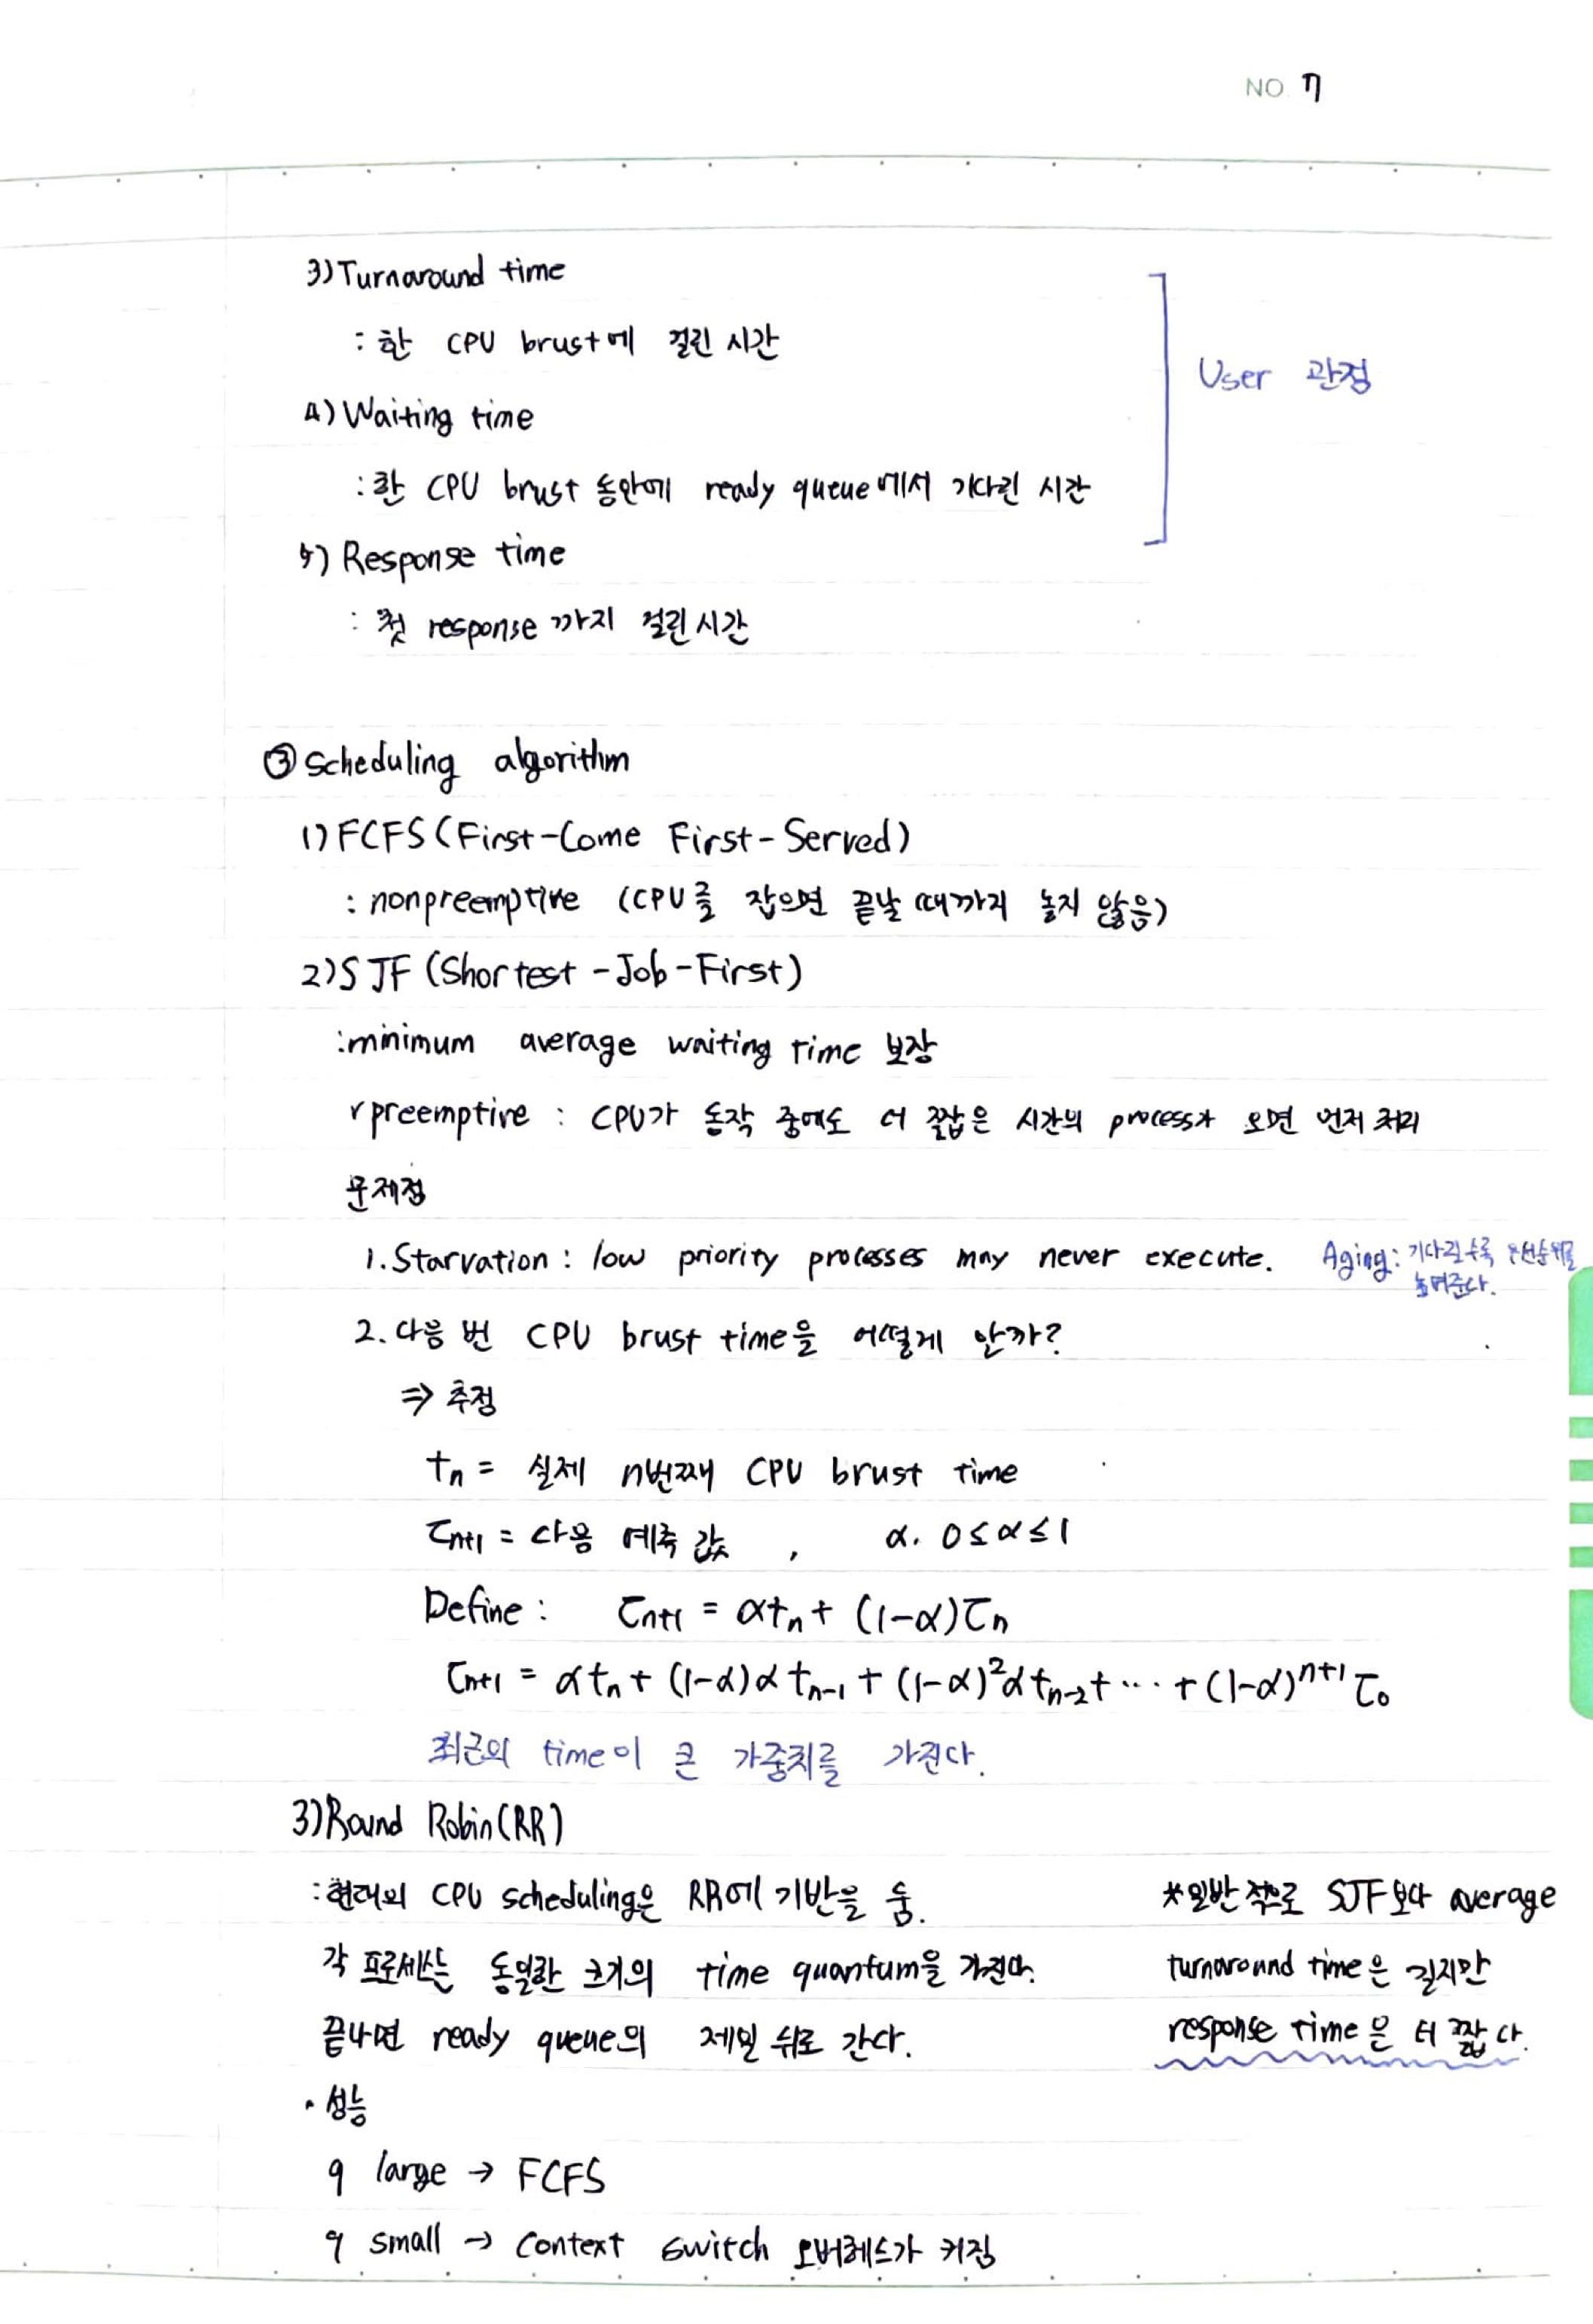 NO. 7
3) Turnaround time
: 한 CPU brust에 걸린 시간
User 관점
4) Waiting time
: 한 CPU brust 동안에 ready queue에서 기다린 시간
5) Response time
: 첫 response 까지 걸린 시간
③ Scheduling algorithm
1) FCFS (First-Come First-Served)
: nonpreemptive (CPU를 잡으면 끝날 때까지 놓지 않음)
2) SJF (Shortest-Job-First)
: minimum average waiting time 보장
preemptive : CPU가 동작 중에도 더 짧은 시간의 process가 오면 먼저 처리
문제점
1. Starvation : low priority processes may never execute. Aging : 기다릴수록 우선순위를
높여준다.
2. 다음 번 CPU brust time을 어떻게 안까?
⇒ 추정
tₙ = 실제 n번째 CPU brust time
τₙ₊₁ = 다음 예측 값 , α. 0≤α≤1
Define : τₙ₊₁ = αtₙ + (1-α)τₙ
τₙ₊₁ = αtₙ + (1-α)αtₙ₋₁ + (1-α)²αtₙ₋₂ + ··· + (1-α)ⁿ⁺¹τ₀
최근의 time이 큰 가중치를 가진다.
3) Round Robin (RR)
: 현대의 CPU scheduling은 RR에 기반을 둠.
각 프로세스는 동일한 크기의 time quantum을 가진다.
끝나면 ready queue의 제일 뒤로 간다.
*일반적으로 SJF보다 average
turnaround time은 길지만
response time은 더 짧다.
· 성능
q large → FCFS
q small → Context switch 오버헤드가 커짐